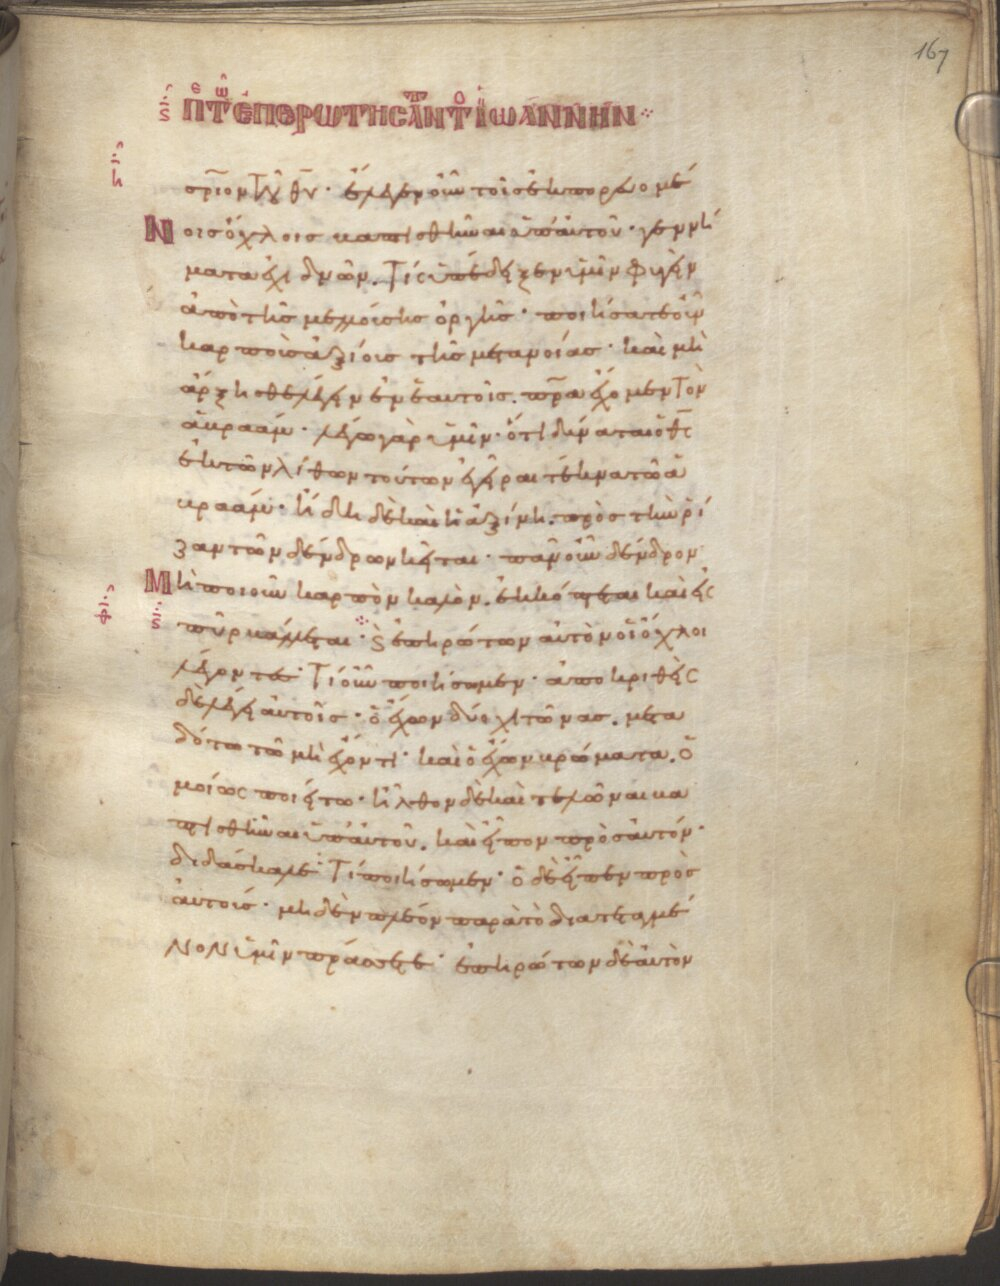 167
ϛ̅ πε τω επερωτησάντ τὸ ἰωάννην
σρ̅ιον τοῦ θυ̅· ἔλεγεν οὖν τοῖς ἐκπορευομέ
νοις ὄχλοις βαπτισθῆναι ὑπ' αὐτοῦ· γεννή
ματα ἐχιδνῶν. Τίς ὑπέδειξεν ὑμῖν φυγεῖν
ἀπὸ τῆς μελλούσης ὀργῆς· ποιήσατε οὖν
καρποὺς ἀξίοις τῆς μετανοίας· καὶ μὴ
ἄρξησθε λέγειν ἐν ἑαυτοῖς. πρ̅α ἔχομεν Τὸν
ἀβραάμ· λέγω γὰρ ὑμῖν· ὅτι δύναται ὁ θς̅
ἐκ τῶν λίθων τούτων ἐγεῖραι τέκνα τῶ ἀ
βραάμ· ἤδη δὲ καὶ ἡ ἀξίνη. πρὸς τὴν ῥί
ζαν τῶν δένδρων κεῖται· πᾶν οὖν δένδρον
Μὴ ποιοῦν καρπὸν καλὸν. ἐκκόπτεται καὶ εἰς
πῦρ βάλλεται· ϗ ἐπηρώτων αὐτὸν οἱ ὄχλοι
λέγοντες· Τί οὖν ποιήσωμεν· ἀποκριθεὶς
δὲ λέγει αὐτοῖς· ὁ ἔχων δύο χιτῶνας. μετα
δότω τῶ μὴ ἔχοντι· καὶ ὁ ἔχων βρώματα. ὁ
μοίως ποιείτω· ἦλθον δὲ καὶ τελῶναι βα
πτισθῆναι ὑπ' αὐτοῦ. καὶ εἶπον πρὸς αὐτόν·
διδάσκαλε· Τί ποιήσωμεν· ὁ δὲ εἶπεν πρὸς
αὐτούς· μηδὲν πλέον παρὰ τὸ διατεταγμέ
νον ὑμῖν πράσσετε· ἐπηρώτων δὲ αὐτὸν